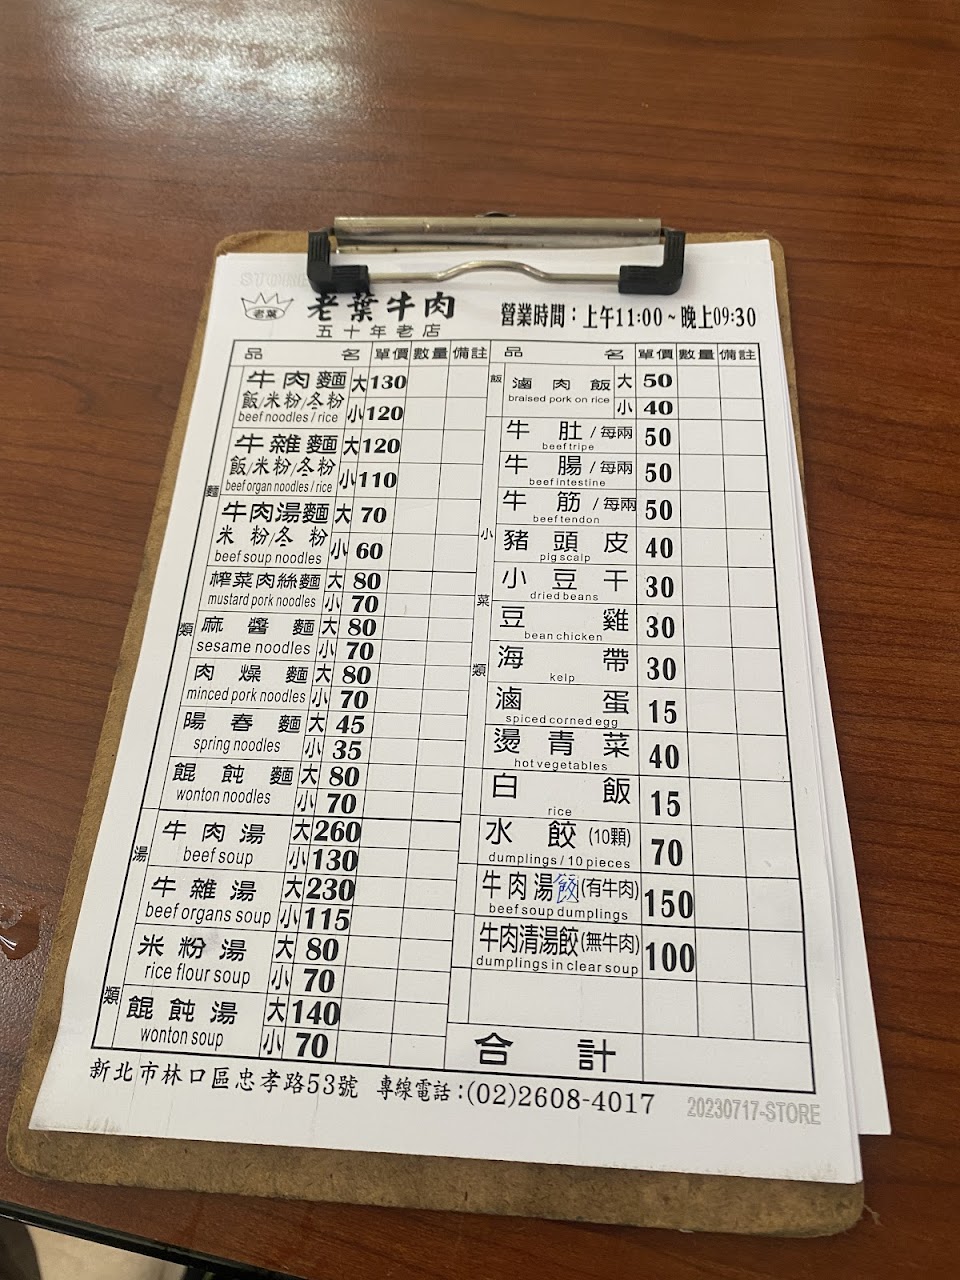 STORE
老葉
老葉牛肉
五十年老店
營業時間：上午11:00~晚上09:30
品名 單價 數量 備註
麵類
牛肉麵 大 130
飯/米粉/冬粉 小 120
beef noodles / rice
牛雜麵 大 120
飯/米粉/冬粉 小 110
beef organ noodles / rice
牛肉湯麵 大 70
米粉/冬粉 小 60
beef soup noodles
榨菜肉絲麵 大 80
mustard pork noodles 小 70
麻醬麵 大 80
sesame noodles 小 70
肉燥麵 大 80
minced pork noodles 小 70
陽春麵 大 45
spring noodles 小 35
餛飩麵 大 80
wonton noodles 小 70
湯類
牛肉湯 大 260
beef soup 小 130
牛雜湯 大 230
beef organs soup 小 115
米粉湯 大 80
rice flour soup 小 70
餛飩湯 大 140
wonton soup 小 70
品名 單價 數量 備註
飯
滷肉飯 大 50
braised pork on rice 小 40
小菜類
牛肚/每兩 50
beef tripe
牛腸/每兩 50
beef intestine
牛筋/每兩 50
beef tendon
豬頭皮 40
pig scalp
小豆干 30
dried beans
豆雞 30
bean chicken
海帶 30
kelp
滷蛋 15
spiced corned egg
燙青菜 40
hot vegetables
白飯 15
rice
水餃(10顆) 70
dumplings / 10 pieces
牛肉湯餃(有牛肉) 150
beef soup dumplings
牛肉清湯餃(無牛肉) 100
dumplings in clear soup
合計
新北市林口區忠孝路53號 專線電話：(02)2608-4017
20230717-STORE